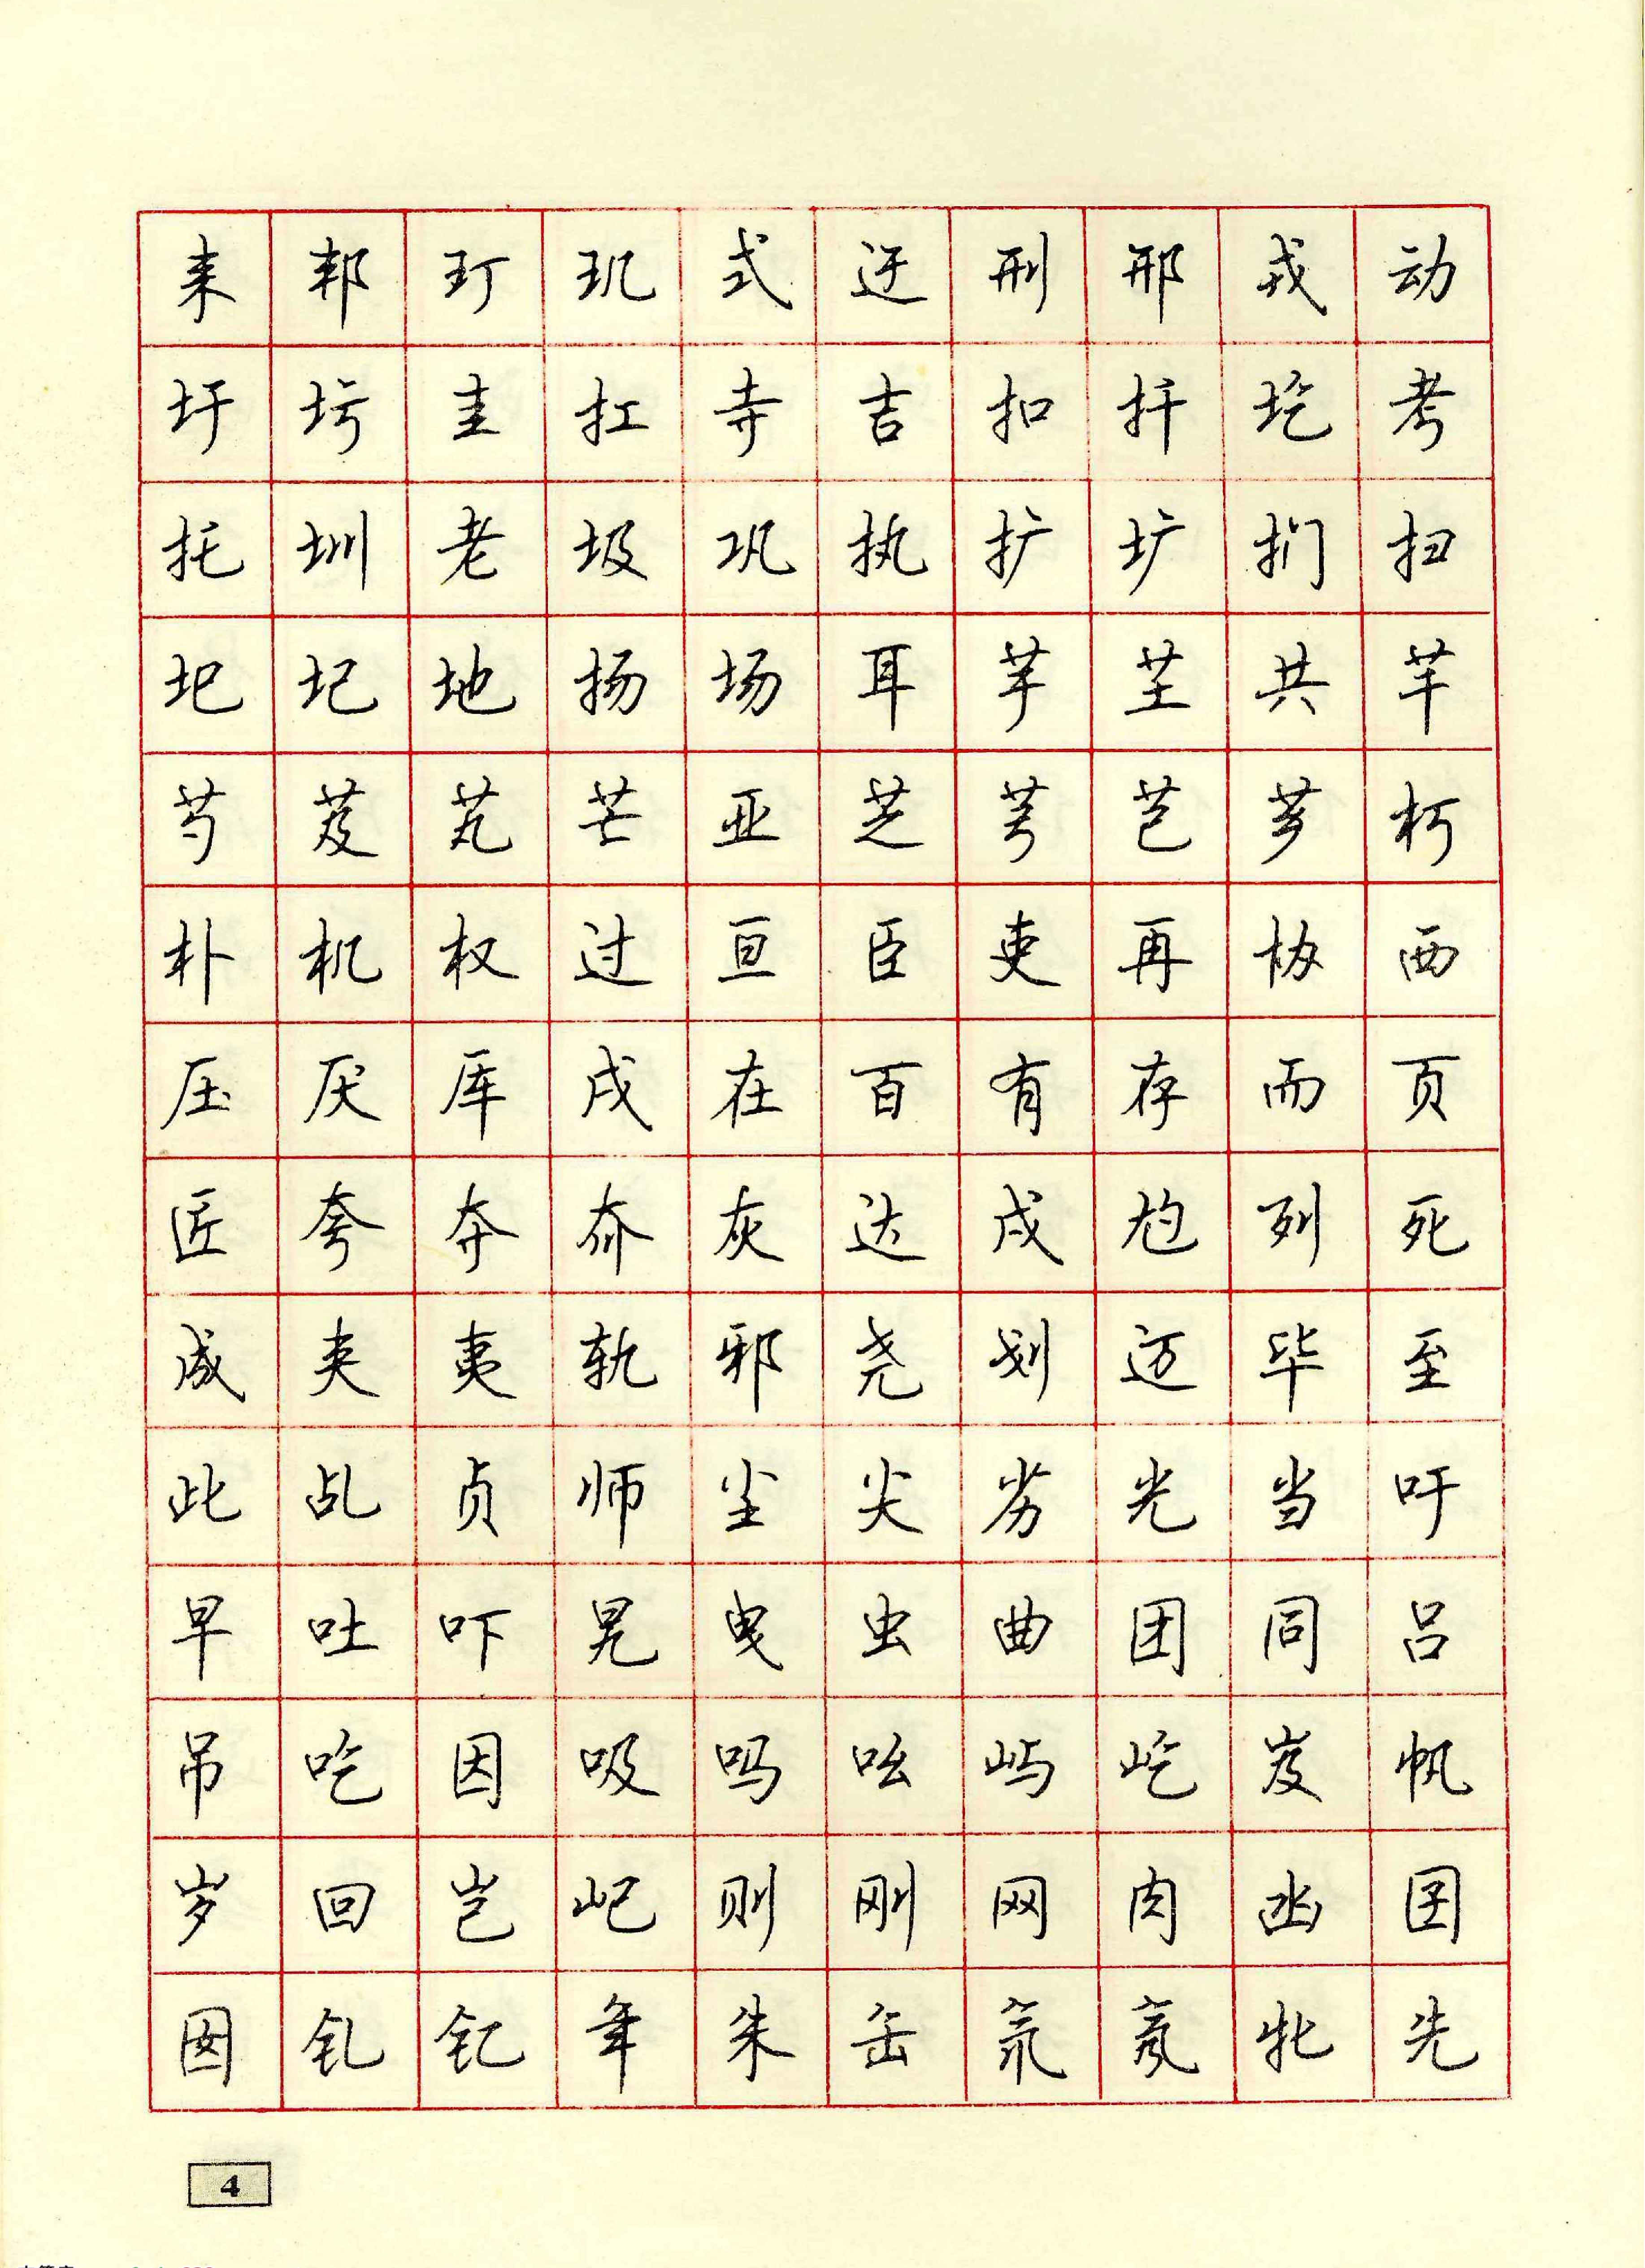 耒邦玎玑式迂刑邢戎动
圩圬圭扛寺吉扣扦圪考
托圳老圾巩执扩圹扪扫
圯圮地扬场耳芋芏共芊
芍芨芄芒亚芝芎芑芗朽
朴机权过亘臣吏再协西
压厌厍戌在百有存而页
匠夸夺夼灰达戍尥列死
成夹夷轨邪尧划迈毕至
此乩贞师尘尖劣光当吁
早吐吓晃曳虫曲团同吕
吊吃因吸吗吆屿屹岌帆
岁回岂屺则刚网肉凼囝
囡钆钇年朱缶氘氖牝先
4